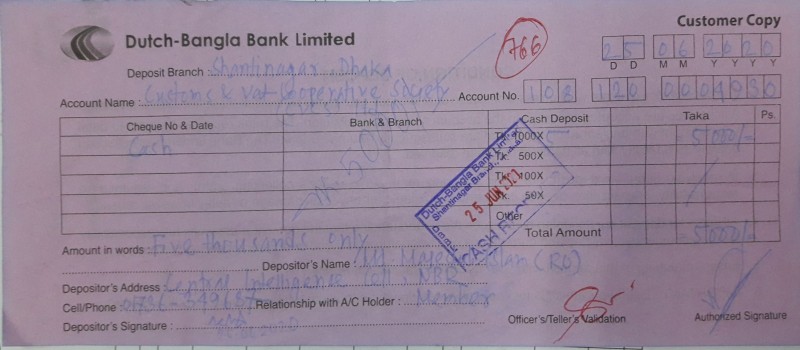 Customer Copy
Dutch-Bangla Bank Limited
766
25 06 2020
D D M M Y Y Y Y
Deposit Branch : Shantinagar, Dhaka
Account Name : Customs & Vat Cooperative Society Account No. 108 120 0004930
Cheque No & Date Bank & Branch Cash Deposit Taka Ps.
Cash Tk. 1000X 5 5000/-
Tk. 500X
Tk. 100X
Tk. 50X
Other
Dutch-Bangla Bank Limited
Shantinagar Branch, Dhaka
25 JUN 202
CASH
Total Amount 5000/-
Amount in words : Five thousands only
Depositor's Name : Md. (RO)
Depositor's Address : Central Intelligence Cell, NBR
Cell/Phone : Relationship with A/C Holder : Member
Depositor's Signature :
Officer's/Teller's Validation
Authorized Signature